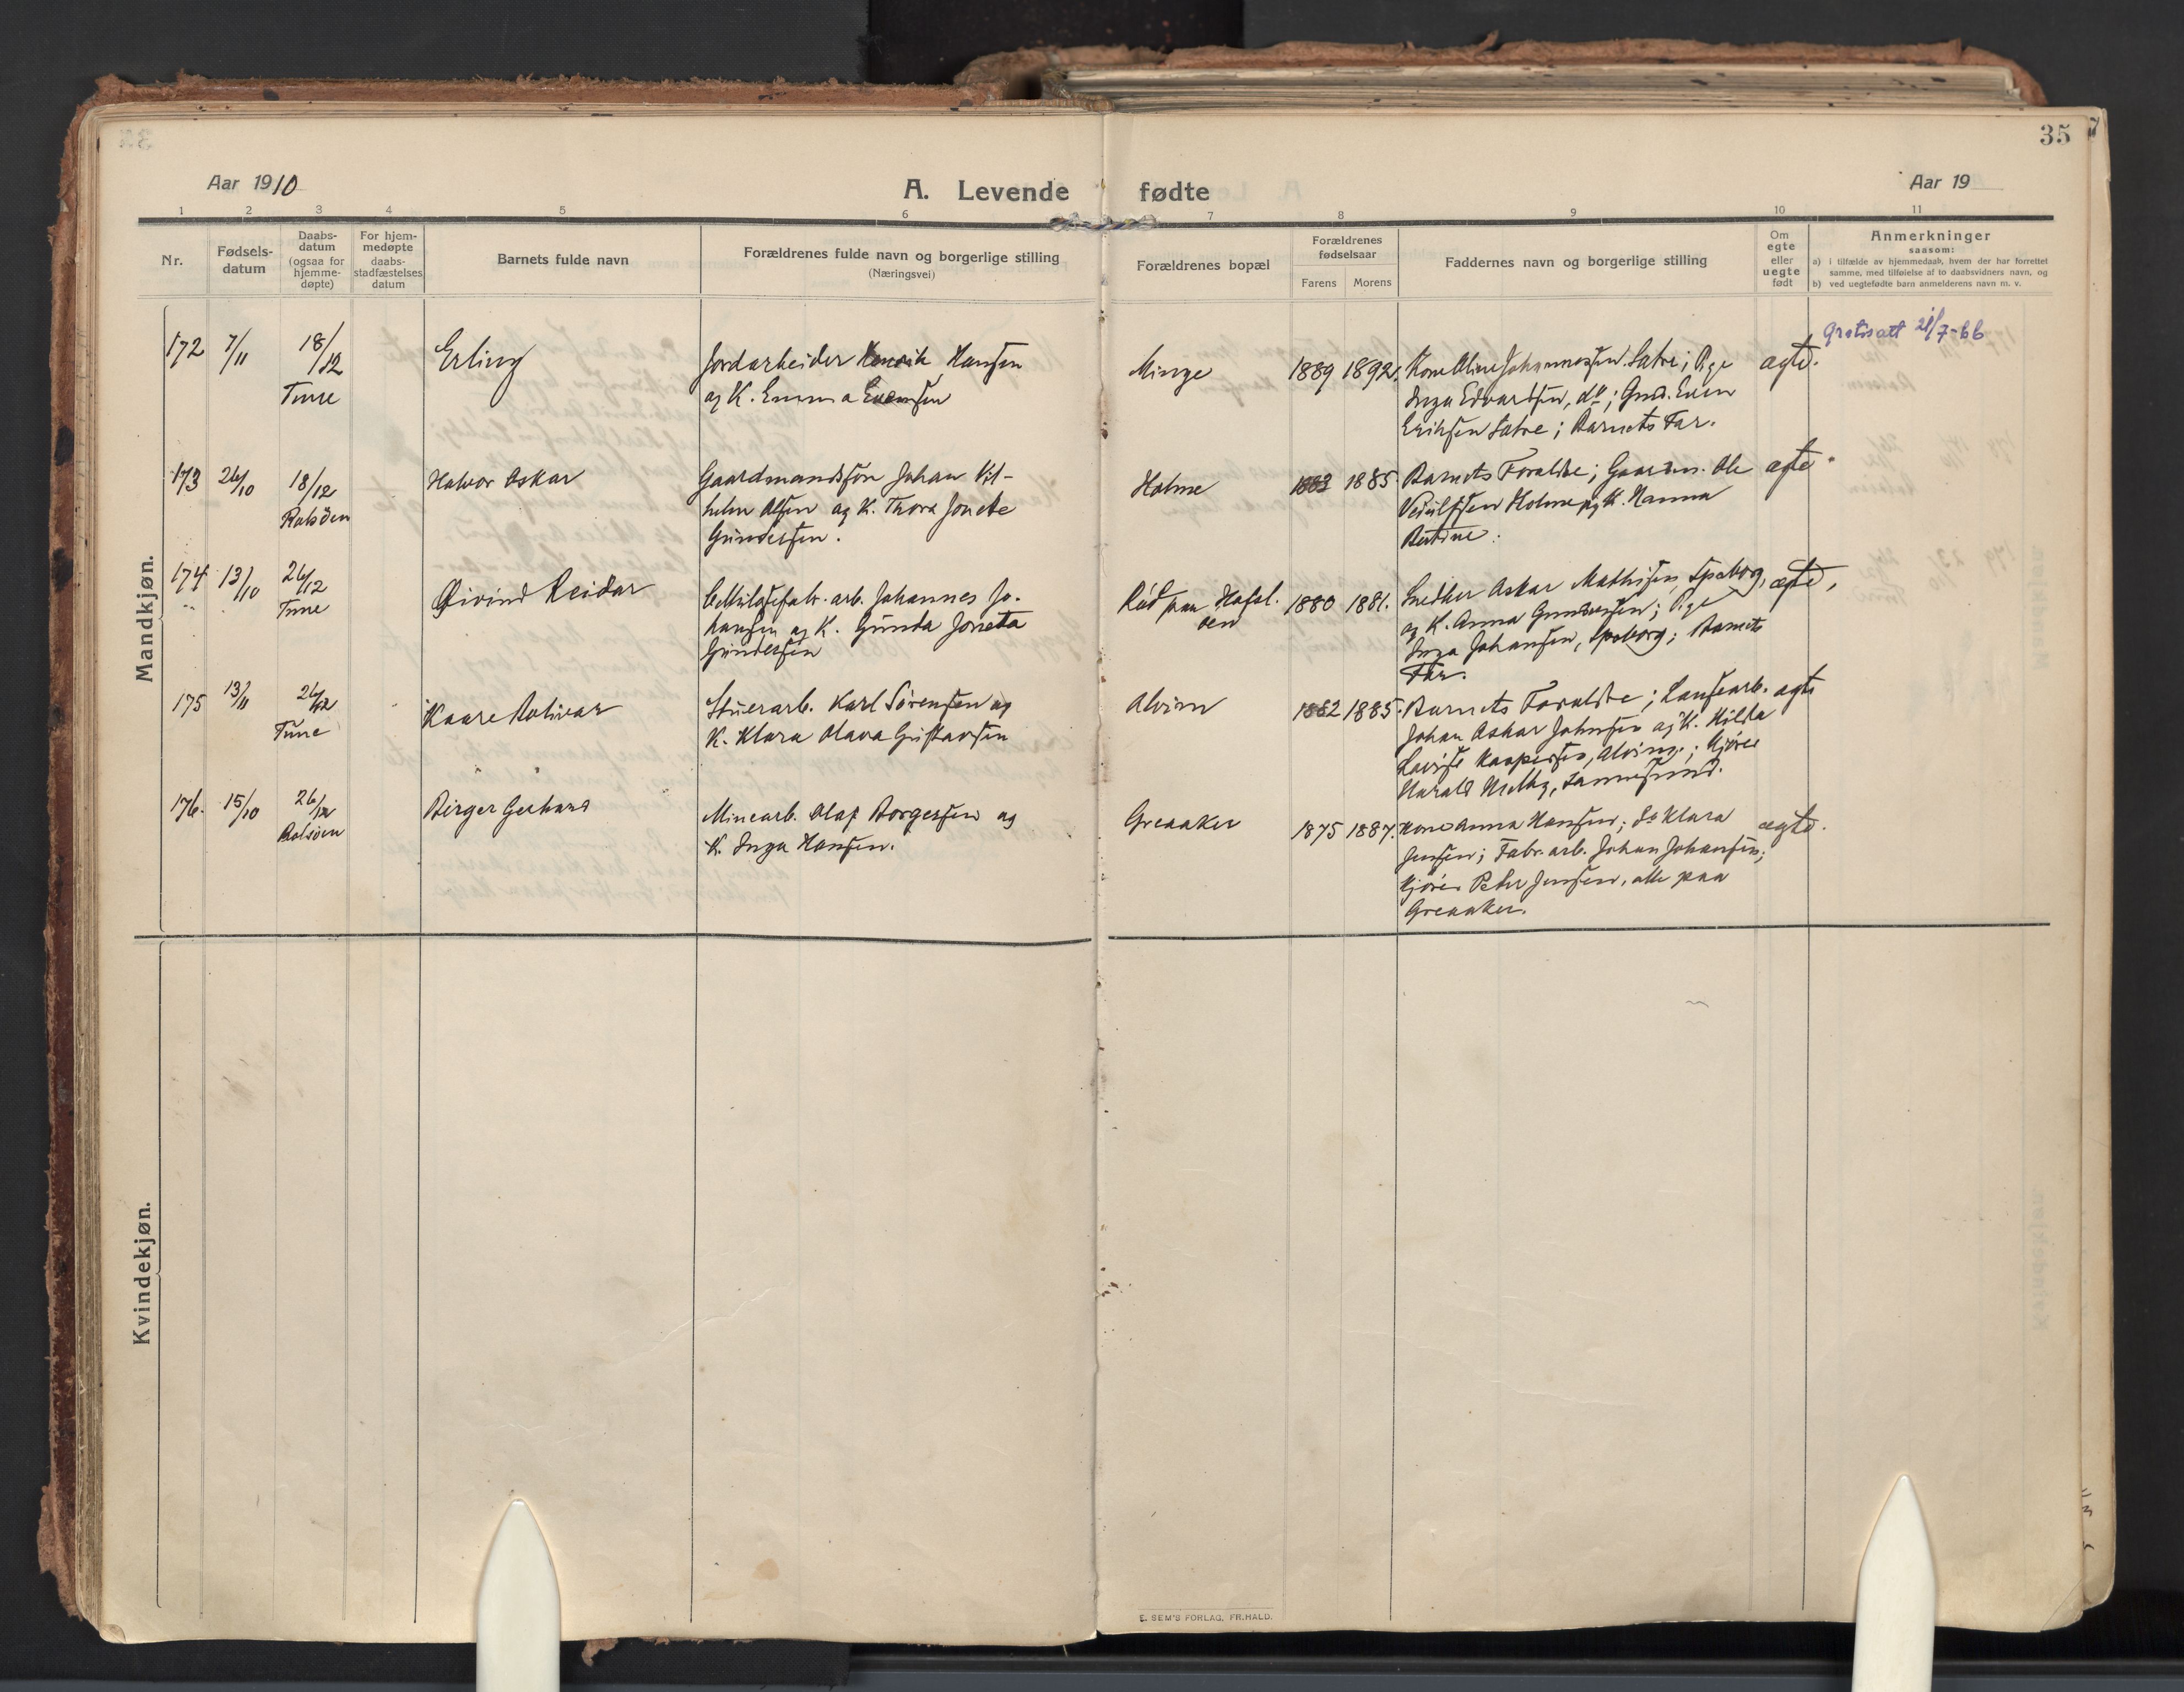 35
Aar 1910
A. Levende fødte
Aar 19
1 2 3 4 5 6 7 8 9 10 11
Nr.
Fødsels-
datum
Daabs-
datum
(ogsaa for
hjemme-
døpte)
For hjem-
medøpte
daabs-
stadfæstelses
datum
Barnets fulde navn
Forældrenes fulde navn og borgerlige stilling
(Næringsvei)
Forældrenes bopæl
Forældrenes
fødselsaar
Farens Morens
Faddernes navn og borgerlige stilling
Om
egte
eller
uegte
født
Anmerkninger
saasom:
a) i tilfælde av hjemmedaab, hvem der har forrettet
samme, med tilføielse af to daabsvidners navn, og
b) ved uegtefødte barn anmelderens navn m. v.
Mandkjøn.
172 7/11 18/12
Tune
Erling
Jordarbeider Henrik Hansen
og K. Emma Evensen
Minge
1889 1892.
Kone Oline Johannessen Satre; Pige
Inga Edvardsen, do; Gmd. Even
Eriksen Satre; Barnets Far.
ægte.
21/7-66
173 26/10 18/12
Rolsöen
Halvor Oskar
Gaardmandssøn Johan Vil-
helm Olsen og K. Thora Josefe
Gundersen.
Holme
1883 1885
Barnets Foraldre; Gaardm. Ole
Holme og K. Hanna
ægte
174 13/10 26/12
Tune
Øivind Reidar
arb. Johannes Jo-
hansen og K. Gunda Joneta
Gundersen
Röd paa Hafsl.
öen
1880 1881.
Snedker Oskar Mathisen, Spaborg,
og K. Anna Gundersen; Pige
Inga Johansen, Spaborg; Barnets
Far.
ægte,
175 13/11 26/12
Tune
Kaare Bolivar
Stuerarb. Karl Sörensen og
K. Klara Olava Gustavsen
Alvim
1882 1885.
Barnets Foraldre; Landsearb.
Johan Oskar Johnsen og K. Hilda
Lovise Kaspersen, Alvim; Kjörer
Harald Melby, Sannesund.
ægte
176. 15/10 26/12
Rolsöen
Birger Gerhard
Minearb. Olaf Borgersen og
K. Inga Hansen.
Greaaker
1875 1887.
Kone Anna Hansen; do Klara
Jensen; Fabr. arb. Johan Johansen;
Kjörer Peter Jensen, alle paa
Greaaker.
ægte.
Kvindekjøn.
E. SEM'S FORLAG, FR.HALD.